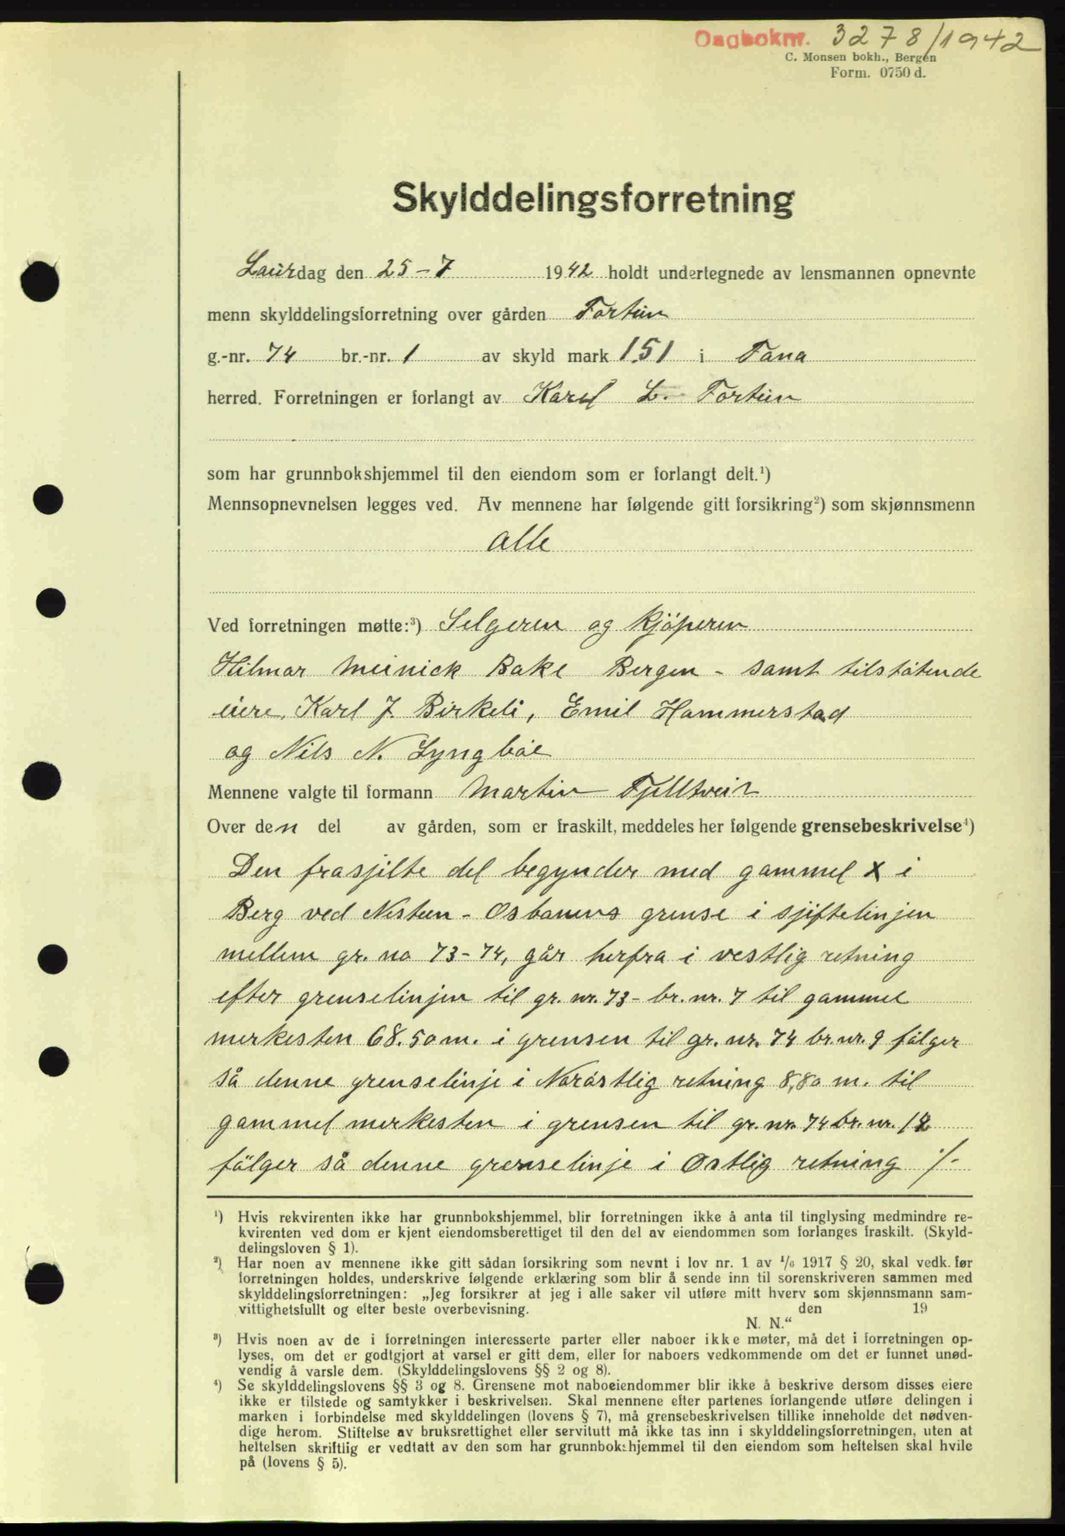 Dagboknr. 3278/1942
C. Monsen bokh., Bergen
Form. 0750 d.
Skylddelingsforretning
Laurdag den 25-7 1942 holdt undertegnede av lensmannen opnevnte
menn skylddelingsforretning over gården Fortun
g.-nr. 74 br.-nr. 1 av skyld mark 1.51 i Fana
herred. Forretningen er forlangt av Karl L. Fortun
som har grunnbokshjemmel til den eiendom som er forlangt delt.¹)
Mennsopnevnelsen legges ved. Av mennene har følgende gitt forsikring²) som skjønnsmenn
alle
Ved forretningen møtte:³) Selgeren og kjöperen
Hilmar Meinick Bake Bergen - samt tilstötende
eiere, Karl J. Birkeli, Emil Hammerstad
og Nils N. Lyngböe
Mennene valgte til formann Martin Fjelltveit
Over den del av gården, som er fraskilt, meddeles her følgende grensebeskrivelse⁴)
Den frasjilte del begynder med gammel X i
Berg ved Nestun - Osbanens grense i sjiftelinjen
mellem gr. no 73-74, går herfra i vestlig retning
efter grenselinjen til gr. nr. 73- br. nr. 7 til gammel
merkesten 68.50 m. i grensen til gr. nr. 74 br. nr. 9 fölger
så denne grenselinje i Noröstlig retning 8,80 m. til
gammel merkesten i grensen til gr. nr. 74 br. nr. 12
fölger så denne grenselinje i Östlig retning ./-
¹) Hvis rekvirenten ikke har grunnbokshjemmel, blir forretningen ikke å anta til tinglysing medmindre re-
kvirenten ved dom er kjent eiendomsberettiget til den del av eiendommen som forlanges fraskilt. (Skyld-
delingsloven § 1).
²) Har noen av mennene ikke gitt sådan forsikring som nevnt i lov nr. 1 av 1917 § 20, skal vedk. før
forretningen holdes, underskrive følgende erklæring som blir å sende inn til sorenskriveren sammen med
skylddelingsforretningen: „Jeg forsikrer at jeg i alle saker vil utføre mitt hverv som skjønnsmann sam-
vittighetsfullt og efter beste overbevisning. den 19
N. N.“
³) Hvis noen av de i forretningen interesserte parter eller naboer ikke møter, må det i forretningen op-
lyses, om det er godtgjort at varsel er gitt dem, eller for naboers vedkommende om det er funnet unød-
vendig å varsle dem. (Skylddelingslovens §§ 2 og 8).
⁴) Se skylddelingslovens §§ 3 og 8. Grensene mot naboeiendommer blir ikke å beskrive dersom disses eiere
ikke er tilstede og samtykker i beskrivelsen. Skal mennene efter partenes forlangende utføre delingen i
marken i forbindelse med skylddelingen (lovens § 7), må grensebeskrivelsen tillike inneholde det nødven-
dige herom. Stiftelse av bruksrettighet eller servitutt må ikke tas inn i skylddelingsforretningen, uten at
heftelsen skriftlig er vedtatt av den som har grunnbokshjemmel til den eiendom som heftelsen skal hvile
på (lovens § 5).